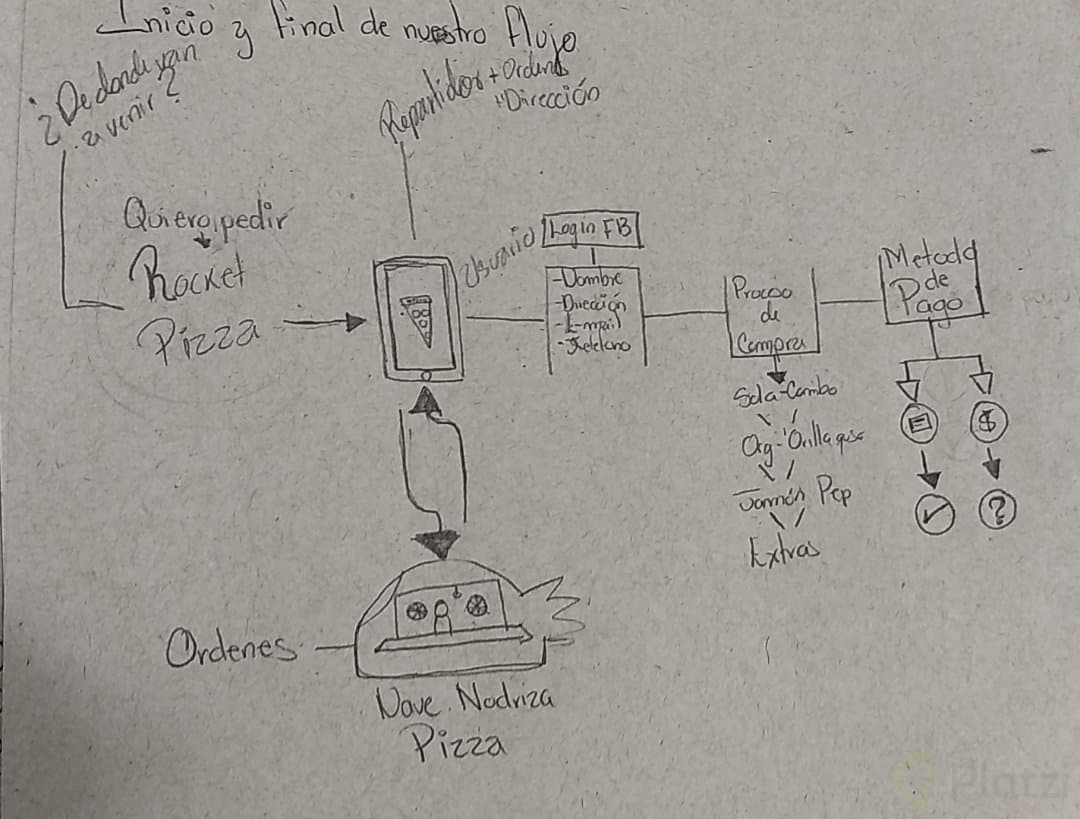 Inicio y final de nuestro flujo
¿De donde van
a venir?
Repartidor + Ordenes
+ Dirección
Quiero pedir
Rocket
Pizza
Usuario
Login FB
- Nombre
- Dirección
- E-mail
- Telefono
Proceso
de
Compra
Metodo
de
Pago
Sola - Combo
Org - Orilla queso
Jamón Pep
Extras
$
?
Ordenes
Nave Nodriza
Pizza
Platzi